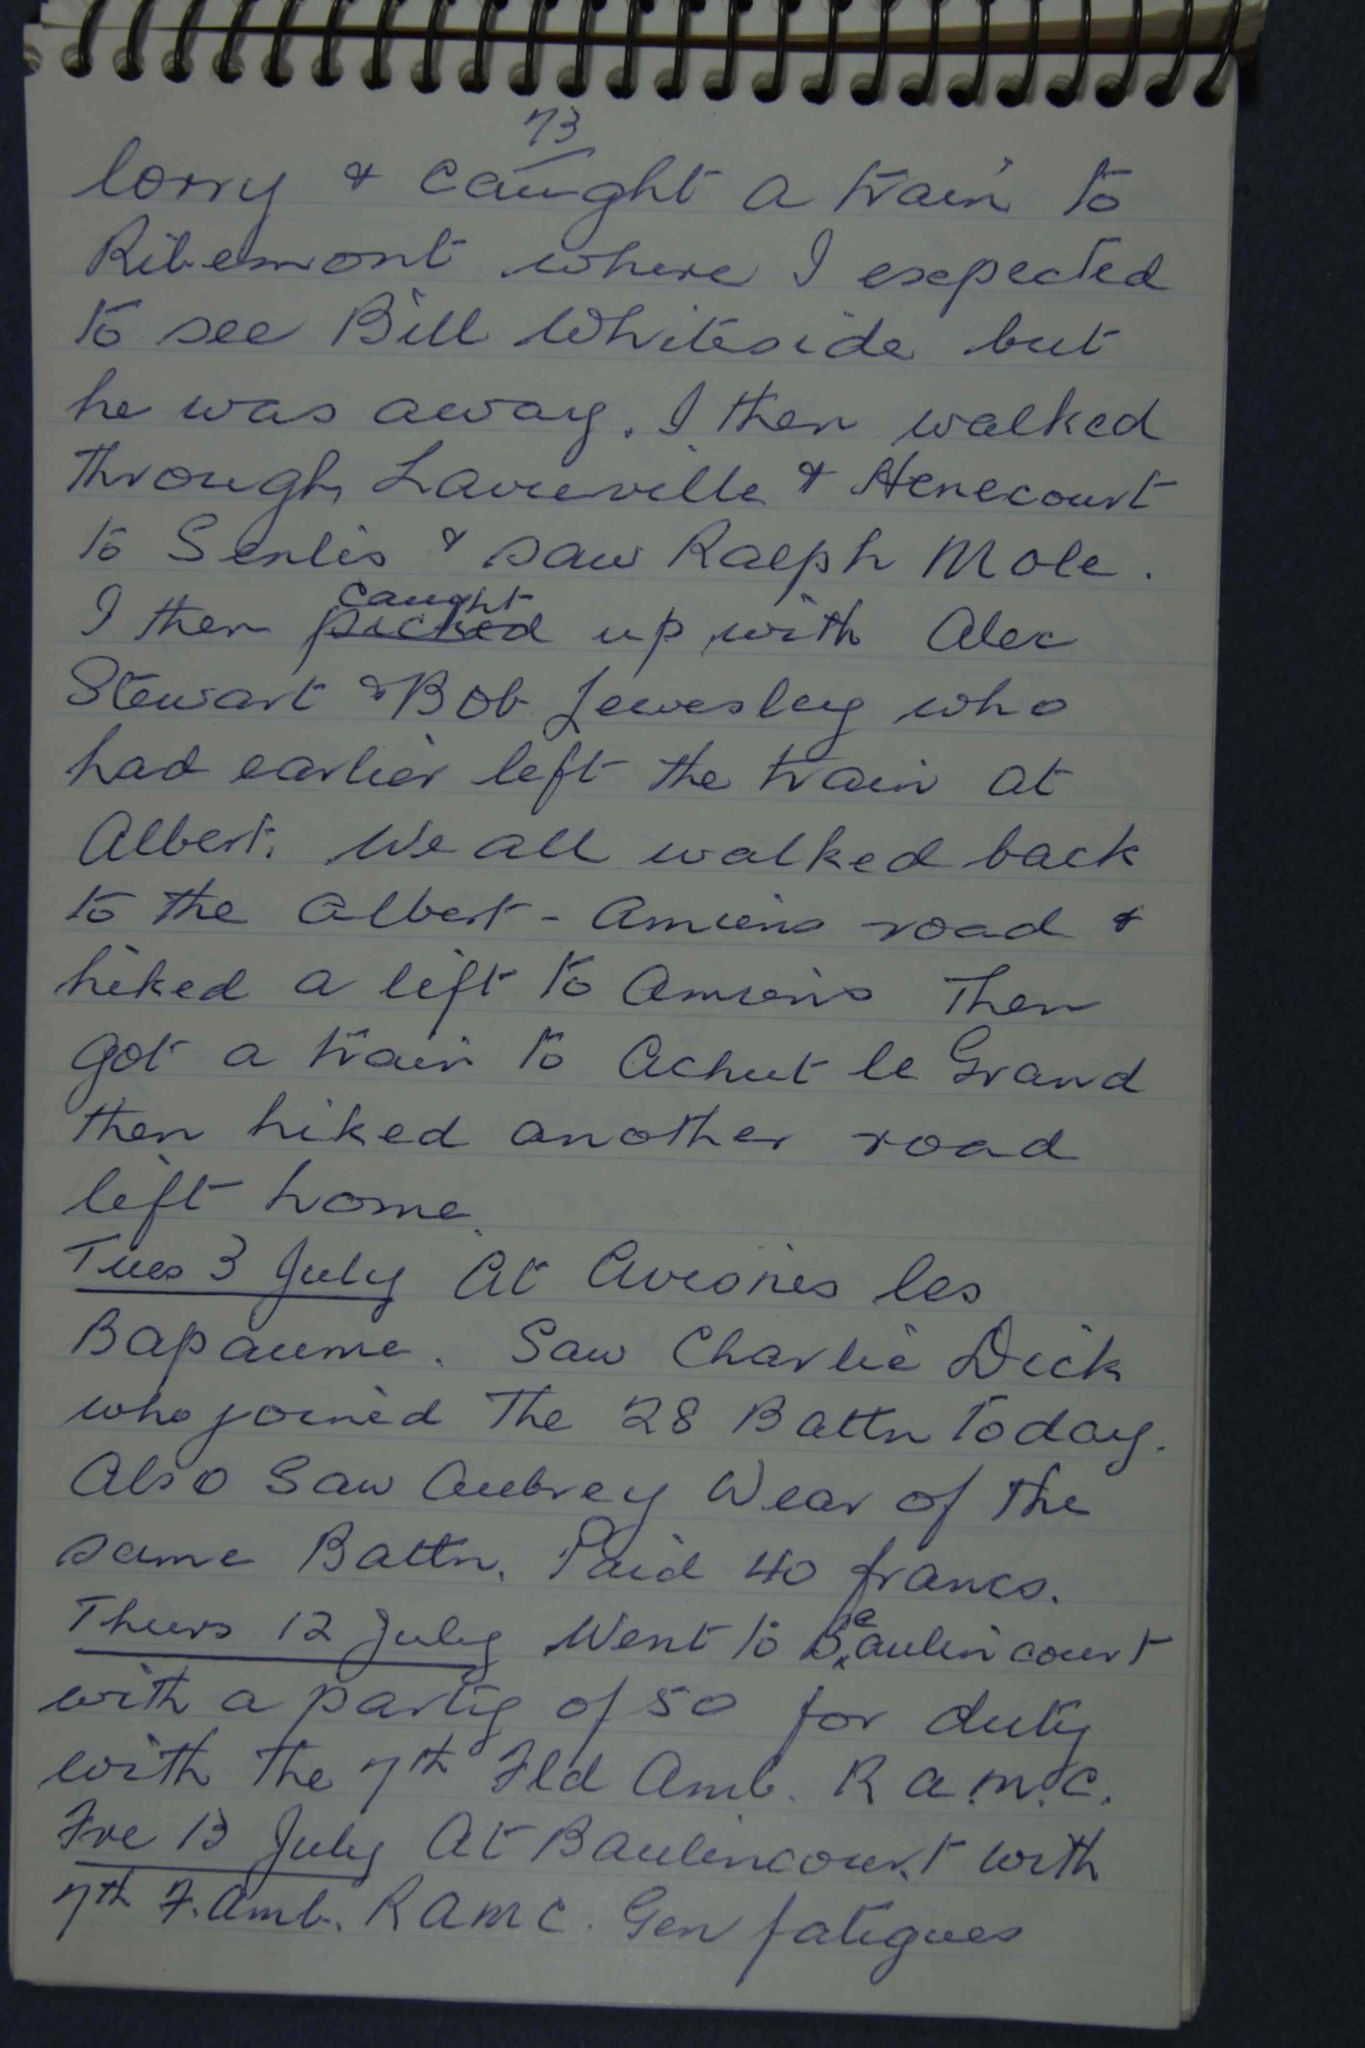 73
lorry & caught a train to
Ribemont where I expected
to see Bill Whiteside but
he was away. I then walked
through Lavieville & Henecourt
to Senlis & saw Ralph Mole.
caught
I then picked up with Alec
Stewart & Bob Lewesley who
had earlier left the train at
Albert. We all walked back
to the Albert - Amiens road &
hiked a lift to Amiens Then
got a train to Achut le Grand
then hiked another road
left home.
Tues 3 July At Avesnes les
Bapaume. Saw Charlie Dick
who joined The 28 Battn Today.
Also Saw Aubrey Wear of the
same Battn. Paid 40 francs.
Thurs 12 July Went to Beaulincourt
with a party of 50 for duty
with the 7th Fld Amb. R a.m.c.
Fre 13 July At Baulincourt with
7th F. Amb. RAMC. Gen fatigues